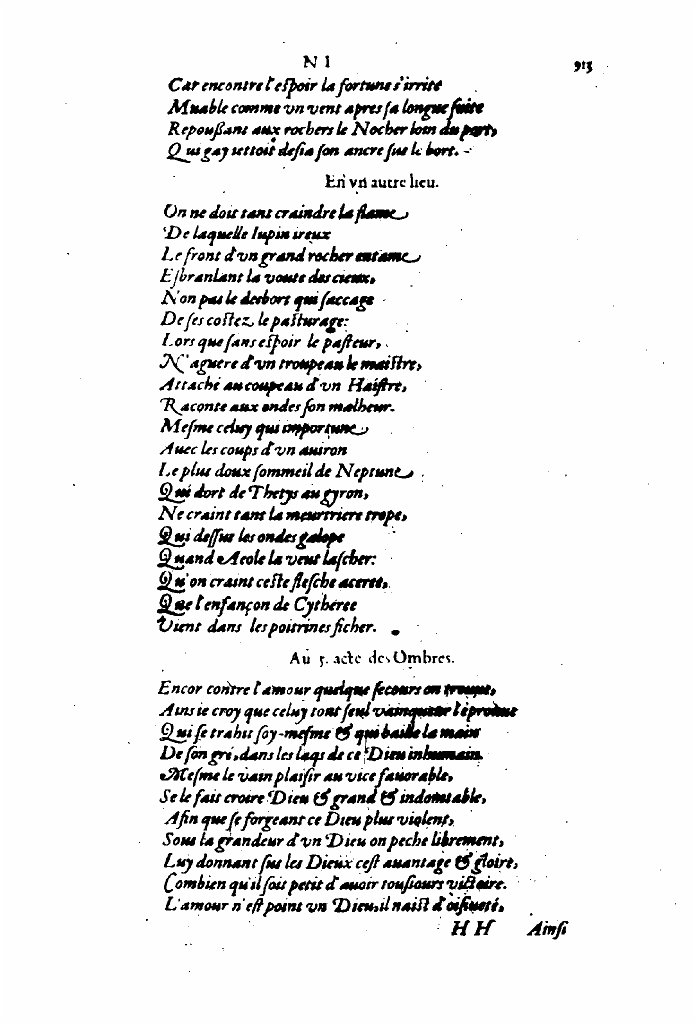 N I 913
Car encontre l'eſpoir la fortune s'irrite
Muable comme vn vent apres ſa longue ſuite
Repouſſant aux rochers le Nocher loin du port,
Qui gay iettoit deſia ſon ancre ſus le bort.
En vn autre lieu.
On ne doit tant craindre la flame
De laquelle Iupin ireux
Le front d'vn grand rocher entame
Eſbranlant la voute des cieux,
Non pas le desbort qui ſaccage
De ſes coſtez le paſturage:
Lors que ſans eſpoir le paſteur,
N'aguere d'vn troupeau le maiſtre,
Attaché au coupeau d'vn Haiſtre,
Raconte aux ondes ſon malheur.
Meſme celuy qui importune
Auec les coups d'vn auiron
Le plus doux ſommeil de Neptune
Qui dort de Thetys au gyron,
Ne craint tant la meurtriere trope,
Qui deſſus les ondes galope
Quand Aeole la veut laſcher:
Qu'on craint ceſte fleſche aceree,
Que l'enfançon de Cytheree
Vient dans les poitrines ficher.
Au 5. acte des Ombres.
Encor contre l'amour quelque ſecours on trouue,
Ains ie croy que celuy tout ſeul vainqueur l'eprouue
Qui ſe trahit ſoy-meſme & qui baille la main
De ſon gré, dans les laqs de ce Dieu inhumain.
Meſme le vain plaiſir au vice fauorable,
Se le fait croire Dieu & grand & indontable,
Afin que ſe forgeant ce Dieu plus violent,
Sous la grandeur d'vn Dieu on peche librement,
Luy donnant ſus les Dieux ceſt auantage & gloire,
Combien qu'il ſoit petit d'auoir touſiours victoire.
L'amour n'eſt point vn Dieu, il naiſt d'oiſiueté,
H H Ainſi